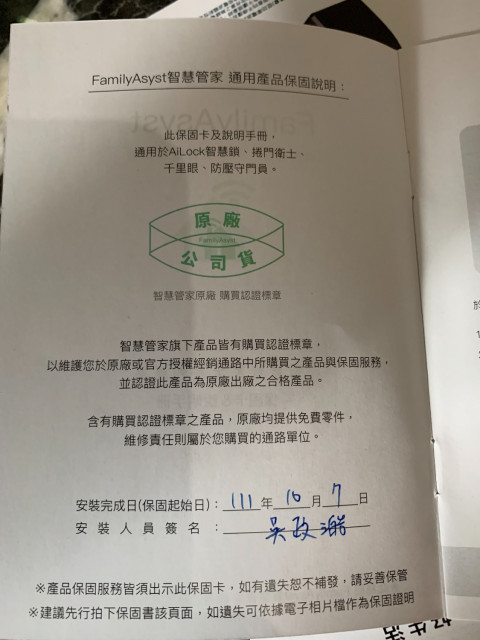 FamilyAsyst智慧管家 通用產品保固說明：
此保固卡及說明手冊，
適用於AiLock智慧鎖、捲門衛士、
千里眼、防壓守門員。
原廠
FamilyAsyst
公司貨
智慧管家原廠 購買認證標章
智慧管家旗下產品皆有購買認證標章，
以維護您於原廠或官方授權經銷通路中所購買之產品與保固服務，
並認證此產品為原廠出廠之合格產品。
含有購買認證標章之產品，原廠均提供免費零件，
維修責任則屬於您購買的通路單位。
安裝完成日(保固起始日)：111年10月7日
安裝人員簽名：吳政
※產品保固服務皆須出示此保固卡，如有遺失恕不補發，請妥善保管
※建議先行拍下保固書該頁面，如遺失可依據電子相片檔作為保固證明